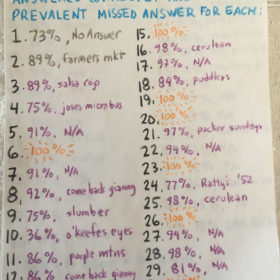 PREVALENT MISSED ANSWER FOR EACH:
1. 73%, No Answer
2. 89%, farmers mkt
3. 89%, salsa rojo
4. 75%, joses microbus
5. 91%, N/A
6. 100%
7. 91%, N/A
8. 92%, come back gianny
9. 75%, slumber
10. 36%, o'keefes eyes
11. 86%, purple mtns
12. 86%, come back gianny
15. 100%
16. 98%, cerulean
17. 97%, N/A
18. 84%, puddlers
19. 100%
20. 100%
21. 97%, packer sundays
22. 94%, N/A
23. 100%
24. 77%, Ratty's '52
25. 98%, cerulean
26. 100%
27. 94%, N/A
28. 98%, N/A
29. 81%, N/A